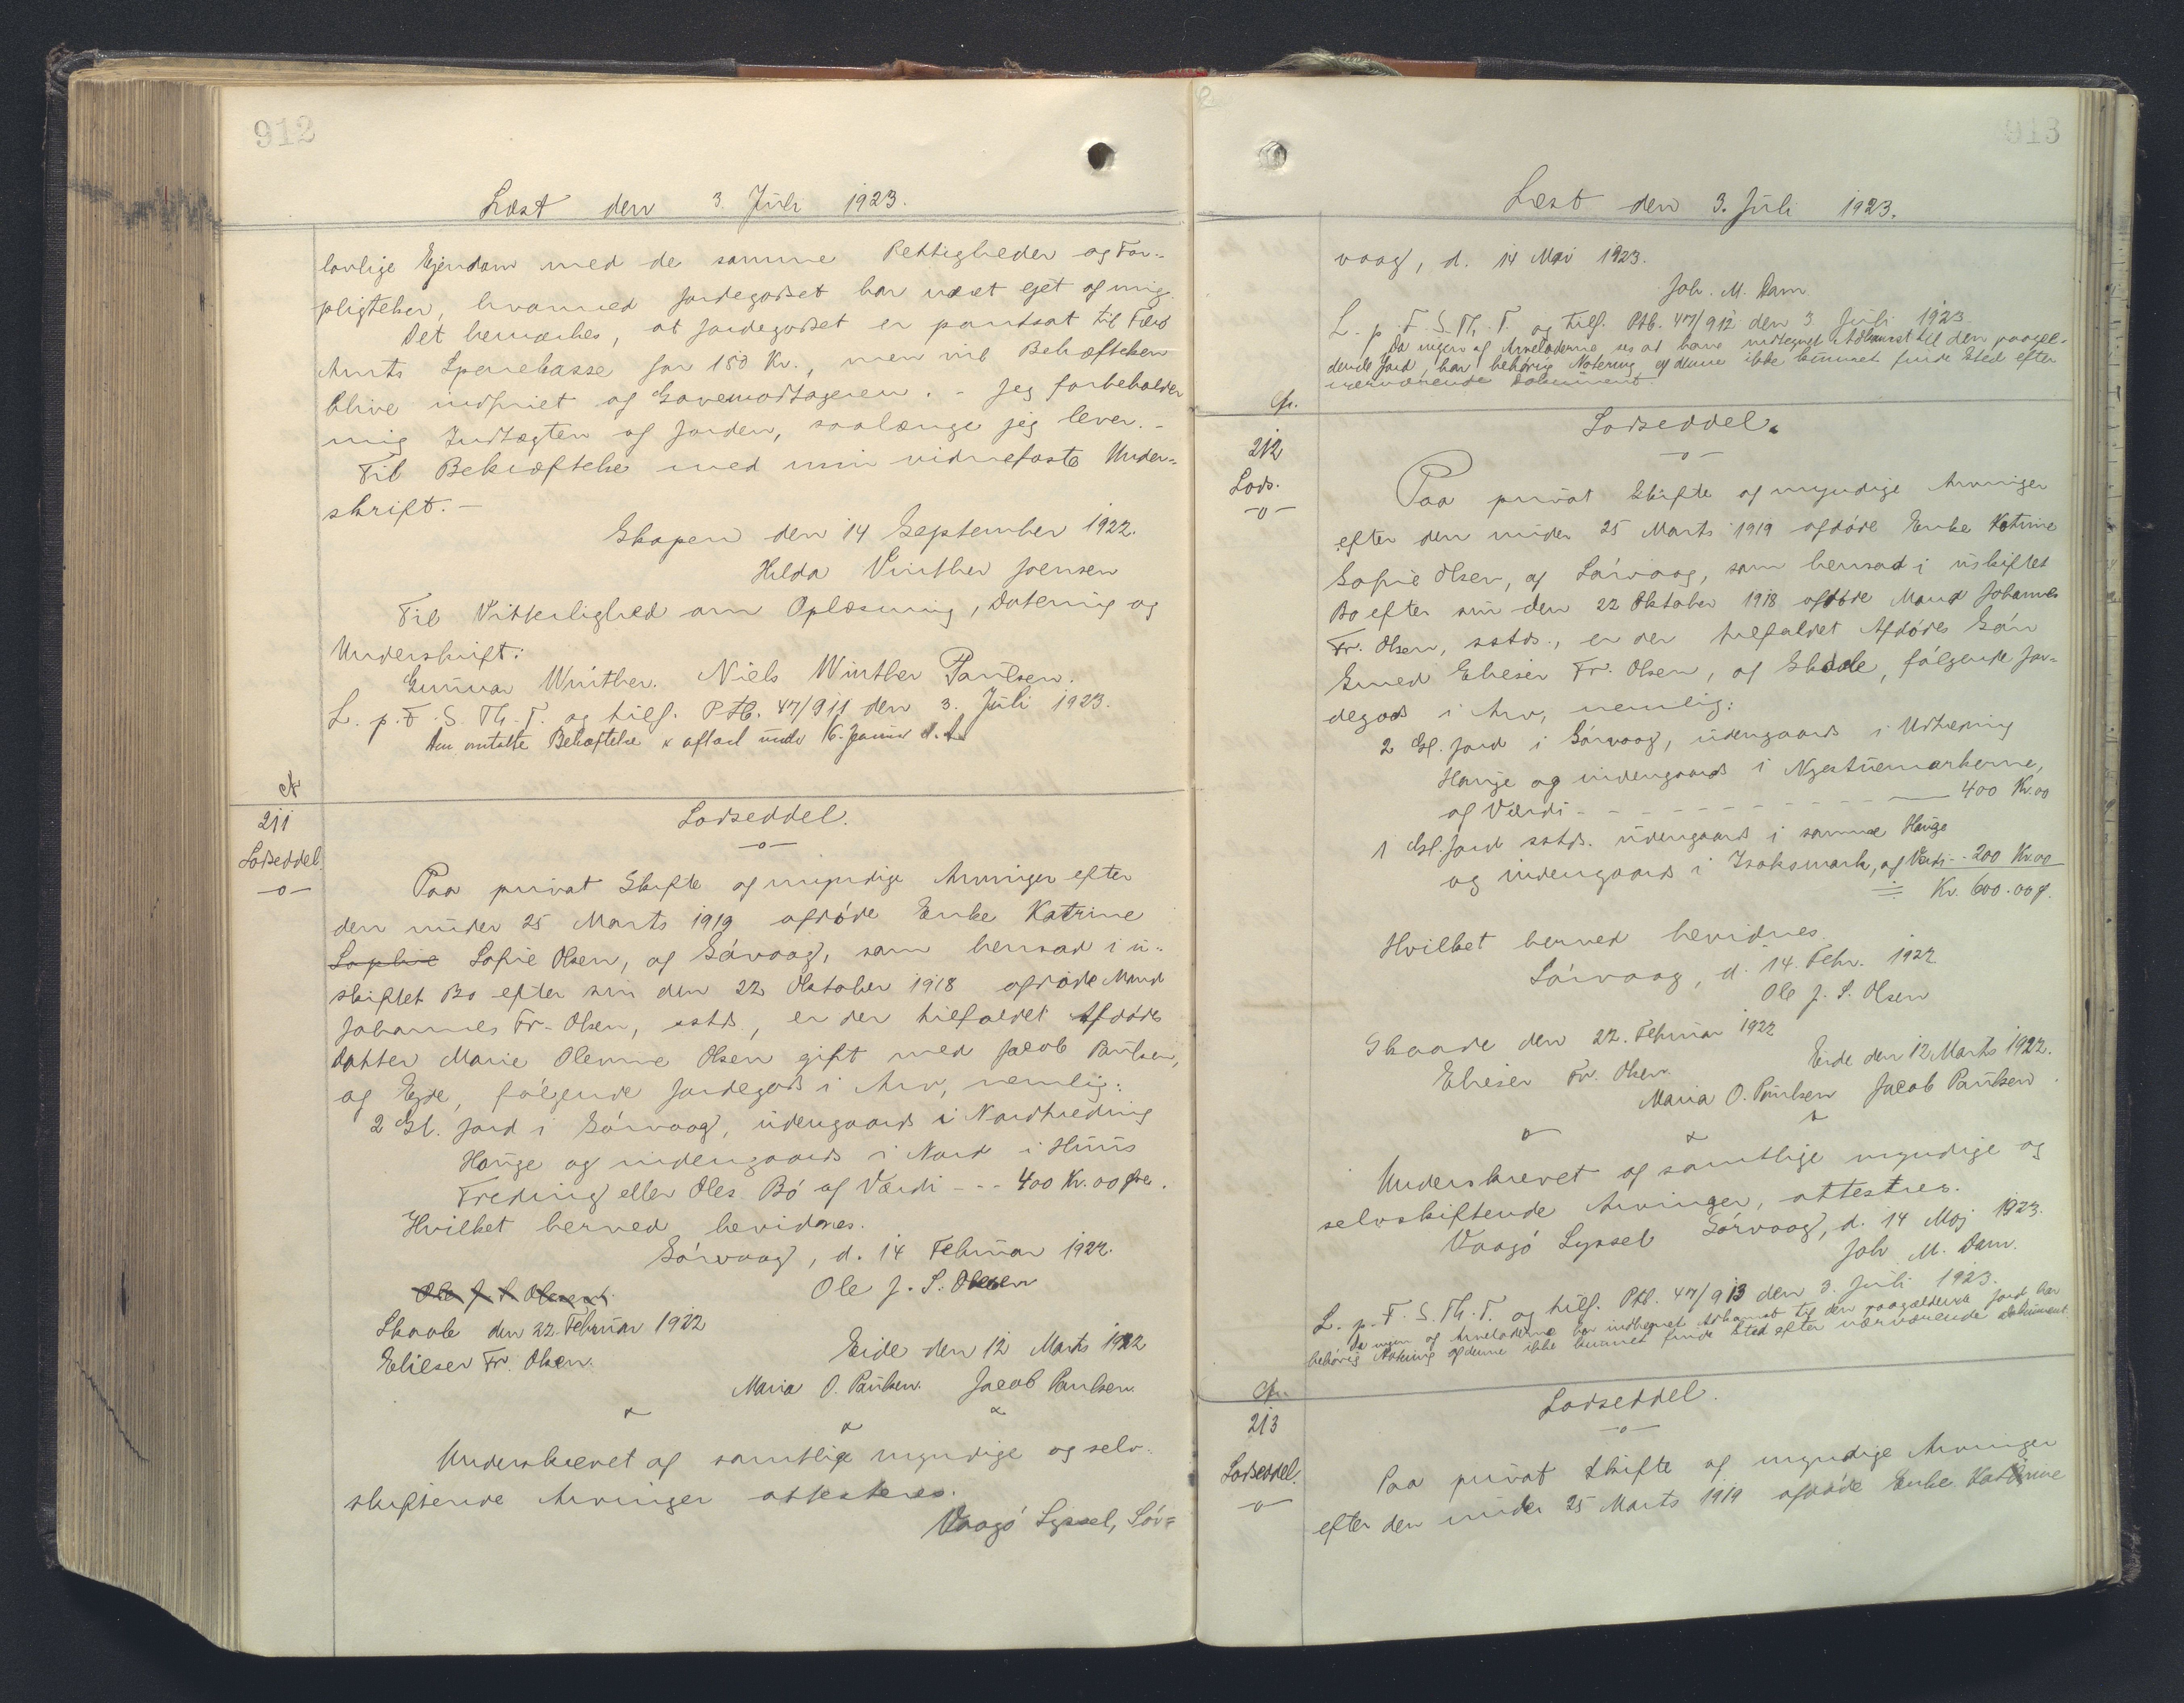 912
Læst den 3. Juli 1923.
lovlige Ejendom med de samme Rettigheder og For-
pligtelser, hvormed Jordegodset har været ejet af mig.
Det bemærkes, at Jordegodset er pantsat til Færø
Amts Sparekasse for 150 Kr., men vil Behæftelsen
blive indfriet af Gavemodtageren. - Jeg forbeholder
mig Indtægten af Jorden, saalænge jeg lever. -
Til Bekræftelse med min vidnefaste Under-
skrift. -
Skopen den 14 September 1922.
Hilda Vinther Joensen
Til Vitterlighed om Oplæsning, Datering og
Underskrift:
Gunnar Winther. Niels Winther Paulsen.
L. p. F. S. Th. T. og tilf. Ptb. 47/911 den 3. Juli 1923.
Den omtalte Behæftelse er aflæst under 16. Januar d. A.
211
Lodseddel
-o-
Lodseddel.
-o-
Paa privat Skifte af myndige Arvinger efter
den under 25 Marts 1919 afdøde Enke Katrine
Sophie Sofie Olsen, af Sórvaag, som hensad i u-
skiftet Bo efter sin den 22 Oktober 1918 afdøde Mand
Johannes Fr. Olsen, sstds., er der tilfaldet Afdødes
Datter Marie Olevine Olsen gift med Jacob Paulsen,
af Ejde, følgende Jordegods i Arv, nemlig:
2 Gl. Jord i Sórvaag, udengaards i Nordtredning
Hauge og indengaards i Nord i Huus
Tredning eller Oles Bó af Værdi --- 400 Kr. 00 Øre.
Hvilket herved bevidnes.
Sórvaag, d. 14 Februar 1922.
Ole J. S. Olsen Ole J. S. Olsen
Skaale den 22. Februar 1922
Elieser Fr. Olsen.
Eide den 12 Marts 1922
Maria O. Paulsen. Jacob Paulsen.
Underskrevet af samtlige myndige og selv-
skiftende Arvinger attesteres.
Vaagó Syssel, Sór=
913
Læst den 3. Juli 1923.
vaag, d. 14 Mai 1923.
Joh. M. Dam
L. p. F. S. Th. T. og tilf. Ptb. 47/912 den 3 Juli 1923
Da ingen af Arveladerne ses at have indtegnet Adkomst til den paagæl-
dende Jord, har behørig Notering af denne ikke kunnet finde Sted efter
nærværende Dokument.
212
Lods.
-o-
Lodseddel.
-o-
Paa privat Skifte af myndige Arvinger
efter den under 25 Marts 1919 afdøde Enke Katrine
Sofie Olsen, af Sórvaag, som hensad i uskiftet
Bo efter sin den 22 Oktober 1918 afdøde Mand Johannes
Fr. Olsen, sstds., er der tilfaldet Afdødes Søn
Smed Elieser Fr. Olsen, af Skaale, følgende Jor-
degods i Arv, nemlig:
2 Gl. Jord i Sórvaag, udengaards i Uttredning
Hauge og indengaards i Nyestuemarkerne,
af Værdi - - - 400 Kr. 00
1 Gl. Jord sstds. udengaards i samme Hauge
og indengaards i Isaksmark, af Værdi -- 200 Kr. 00
Kr. 600.00 Ø.
Hvilket herved bevidnes.
Sórvaag, d. 14. Febr. 1922
Ole J. S. Olsen
Skaale den 22. Februar 1922
Elieser Fr. Olsen.
Eide den 12 Marts 1922.
Maria O. Paulsen Jacob Paulsen
Underskrevet af samtlige myndige og
selvskiftende Arvinger, attesteres.
Vaagó Syssel Sórvaag, d. 14 Maj 1923.
Joh M. Dam.
L. p. F. S. Th. T. og tilf. Ptb. 47/913 den 3. Juli 1923.
Da ingen af Arveladerne har indtegnet Adkomst til den paagældende Jord har
behørig Notering af denne ikke kunnet finde Sted efter nærværende Dokument.
213
Lodseddel.
-o-
Lodseddel.
-o-
Paa privat Skifte af myndige Arvinger
efter den under 25 Marts 1919 afdøde Enke Katrine